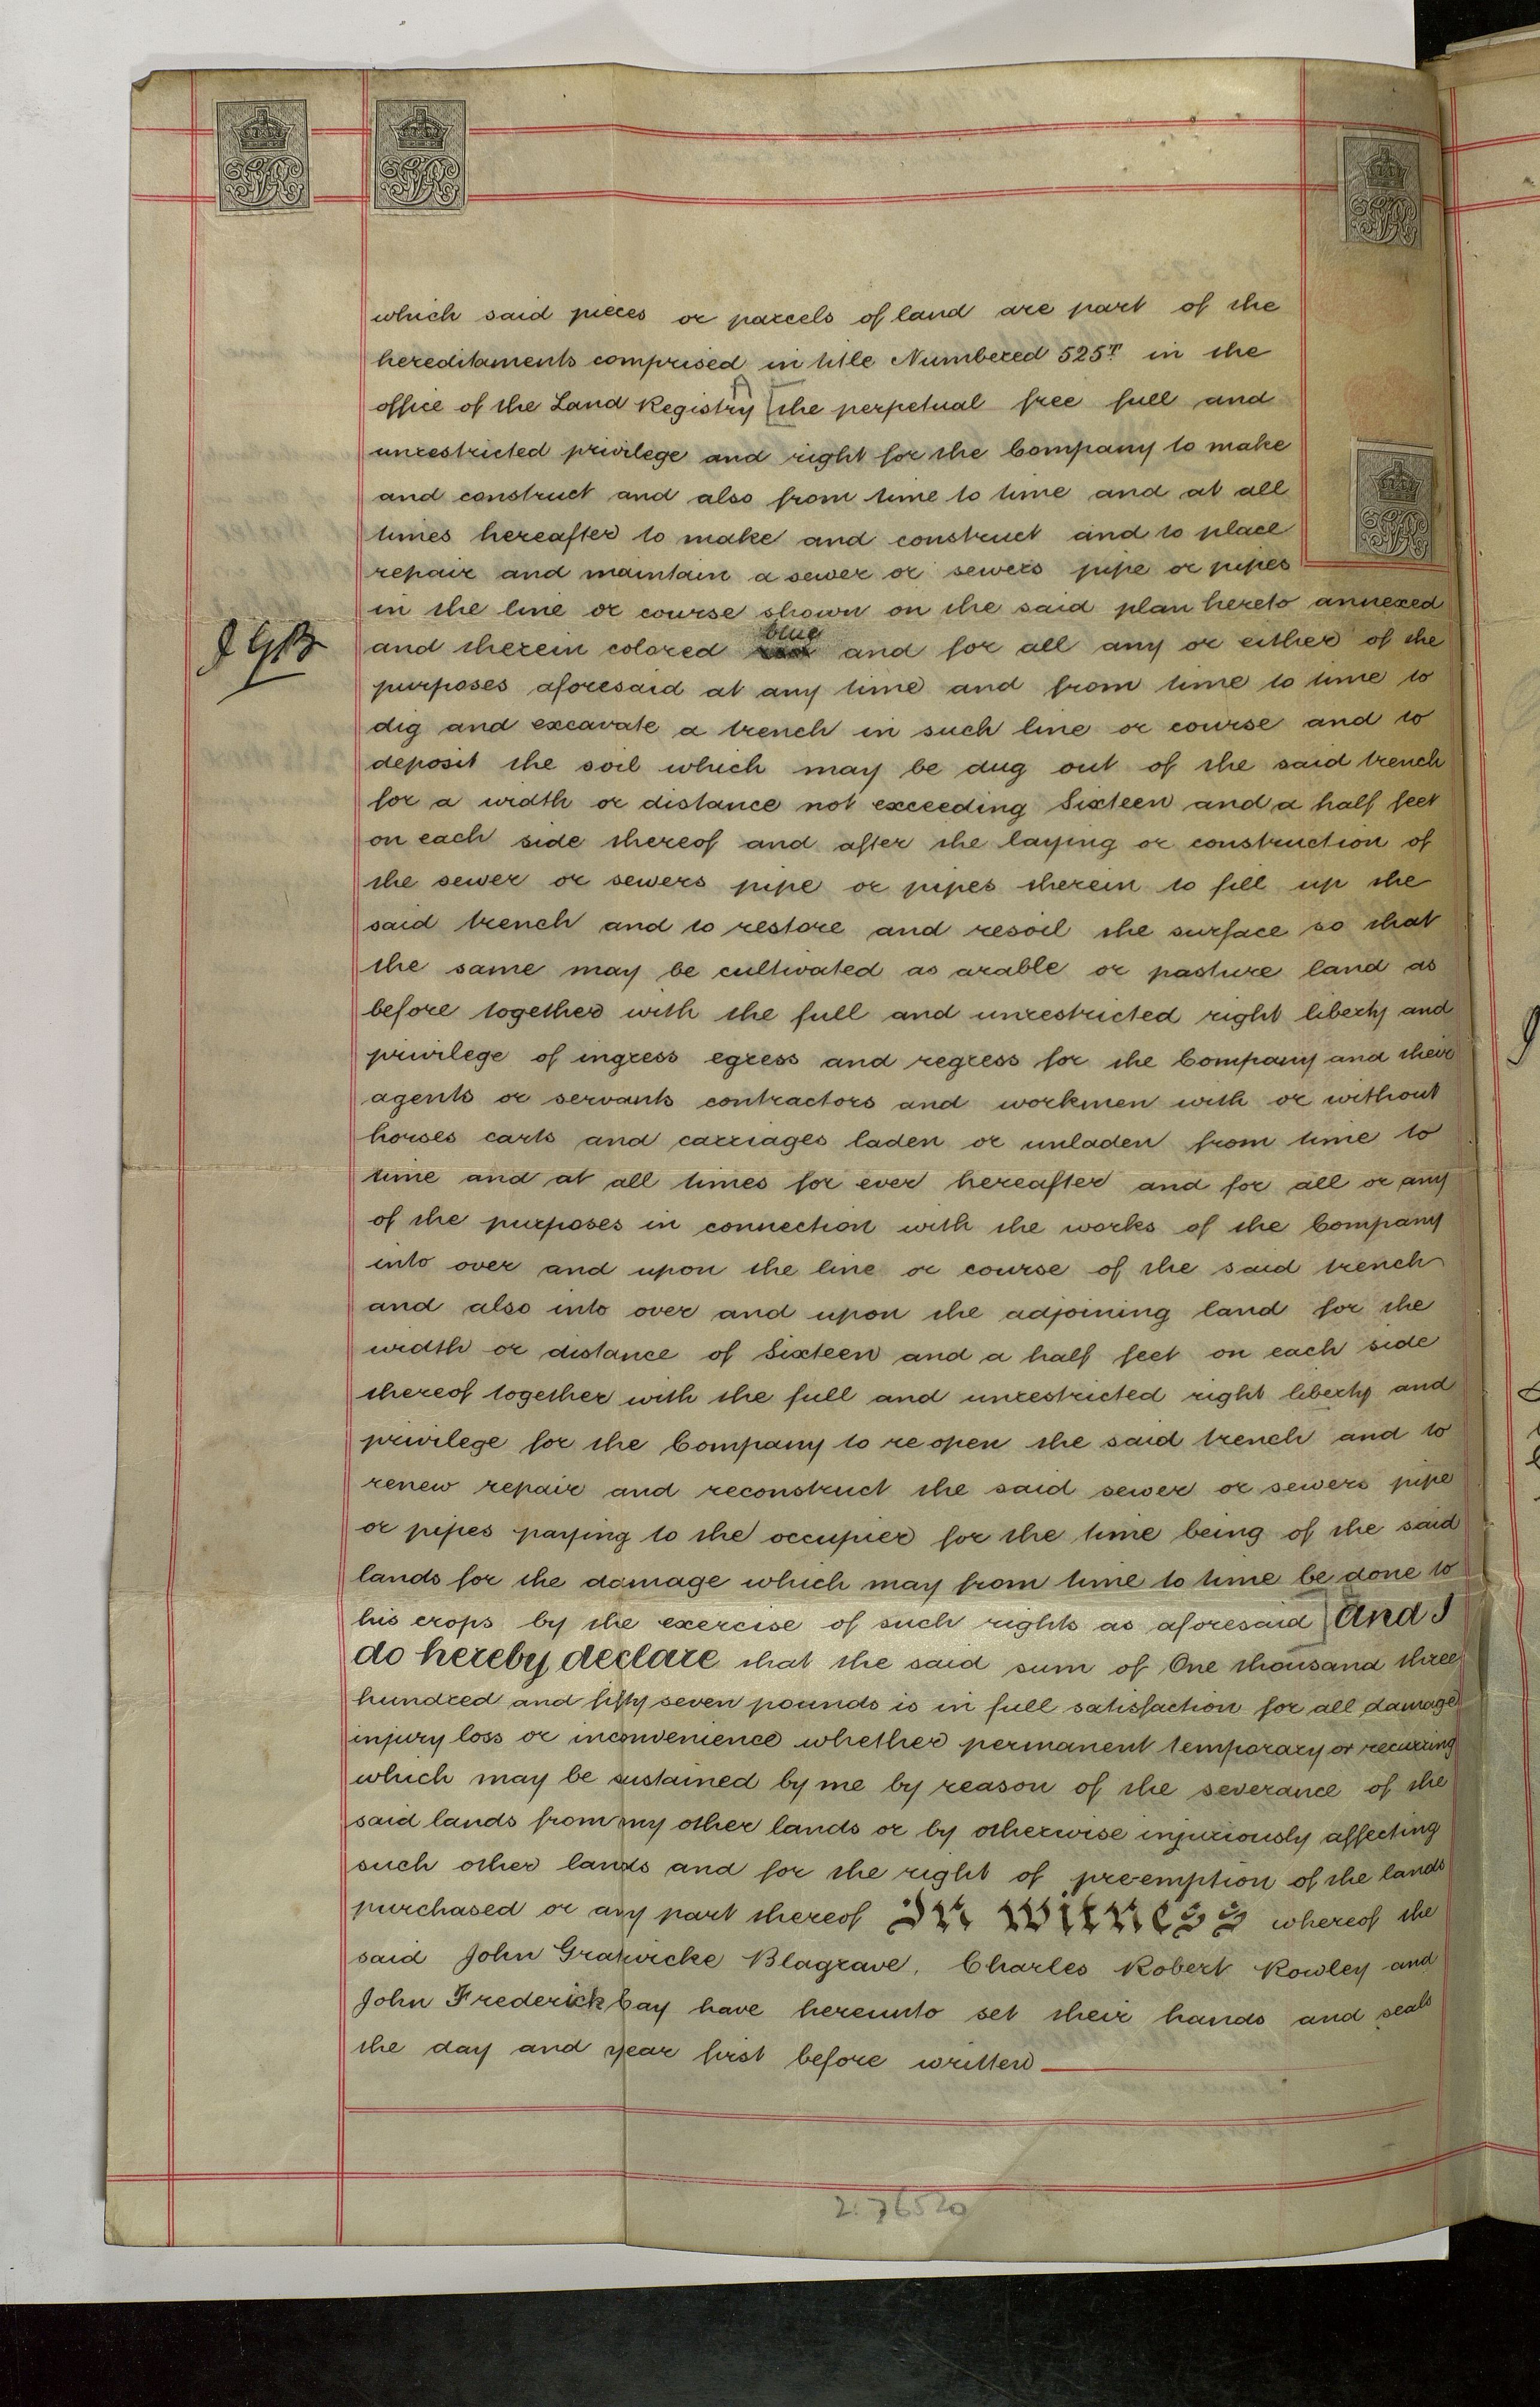 which said pieces or parcels of land are part of the
hereditaments comprised in title Numbered 525T in the
A
office of the Land Registry [the perpetual free full and
unrestricted privilege and right for the Company to make
and construct and also from time to time and at all
times hereafter to make and construct and to place
repair and maintain a sewer or sewers pipe or pipes
in the line or course shown on the said plan hereto annexed
JGB
blue
and therein colored and for all any or either of the
purposes aforesaid at any time and from time to time to
dig and excavate a trench in such line or course and to
deposit the soil which may be dug out of the said trench
for a width or distance not exceeding Sixteen and a half feet
on each side thereof and after the laying or construction of
the sewer or sewers pipe or pipes therein to fill up the
said trench and to restore and resoil the surface so that
the same may be cultivated as arable or pasture land as
before together with the full and unrestricted right liberty and
privilege of ingress egress and regress for the Company and their
agents or servants contractors and workmen with or without
horses carts and carriages laden or unladen from time to
time and at all times for ever hereafter and for all or any
of the purposes in connection with the works of the Company
into over and upon the line or course of the said trench
and also into over and upon the adjoining land for the
width or distance of Sixteen and a half feet on each side
thereof together with the full and unrestricted right liberty and
privilege for the Company to re open the said trench and to
renew repair and reconstruct the said sewer or sewers pipe
or pipes paying to the occupier for the time being of the said
lands for the damage which may from time to time be done to
his crops by the exercise of such rights as aforesaid] And I
do hereby declare that the said sum of One thousand three
hundred and fifty seven pounds is in full satisfaction for all damage
injury loss or inconvenience whether permanent temporary or recurring
which may be sustained by me by reason of the severance of the
said lands from my other lands or by otherwise injuriously affecting
such other lands and for the right of pre-emption of the lands
purchased or any part thereof In Witness whereof the
said John Gratwicke Blagrave, Charles Robert Rowley and
John Frederick Cay have hereunto set their hands and seals
the day and year first before written
2.76520